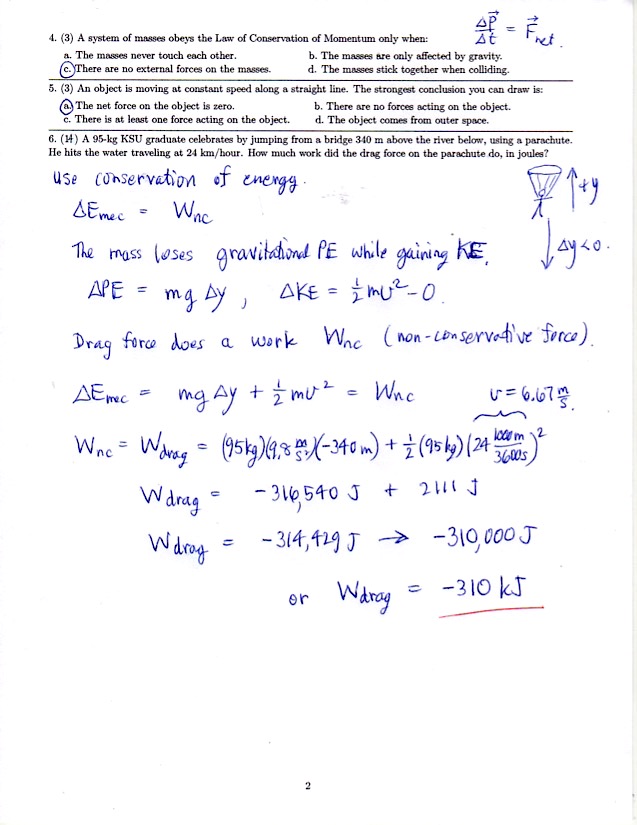 4. (3) A system of masses obeys the Law of Conservation of Momentum only when:
ΔP⃗/Δt = F⃗net.
a. The masses never touch each other. b. The masses are only affected by gravity.
c. There are no external forces on the masses. d. The masses stick together when colliding.
5. (3) An object is moving at constant speed along a straight line. The strongest conclusion you can draw is:
a. The net force on the object is zero. b. There are no forces acting on the object.
c. There is at least one force acting on the object. d. The object comes from outer space.
6. (14) A 95-kg KSU graduate celebrates by jumping from a bridge 340 m above the river below, using a parachute.
He hits the water traveling at 24 km/hour. How much work did the drag force on the parachute do, in joules?
Use conservation of energy.
+y
ΔEmec = Wnc
The mass loses gravitational PE while gaining KE.
Δy<0.
ΔPE = mg Δy, ΔKE = ½mv² - 0.
Drag force does a work Wnc (non-conservative force).
ΔEmec = mg Δy + ½ mv² = Wnc
v = 6.67 m/s.
Wnc = Wdrag = (95kg)(9.8 m/s²)(-340m) + ½ (95kg)(24 1000m/3600s)²
Wdrag = -316,540 J + 2111 J
Wdrag = -314,429 J → -310,000 J
or Wdrag = -310 kJ
2